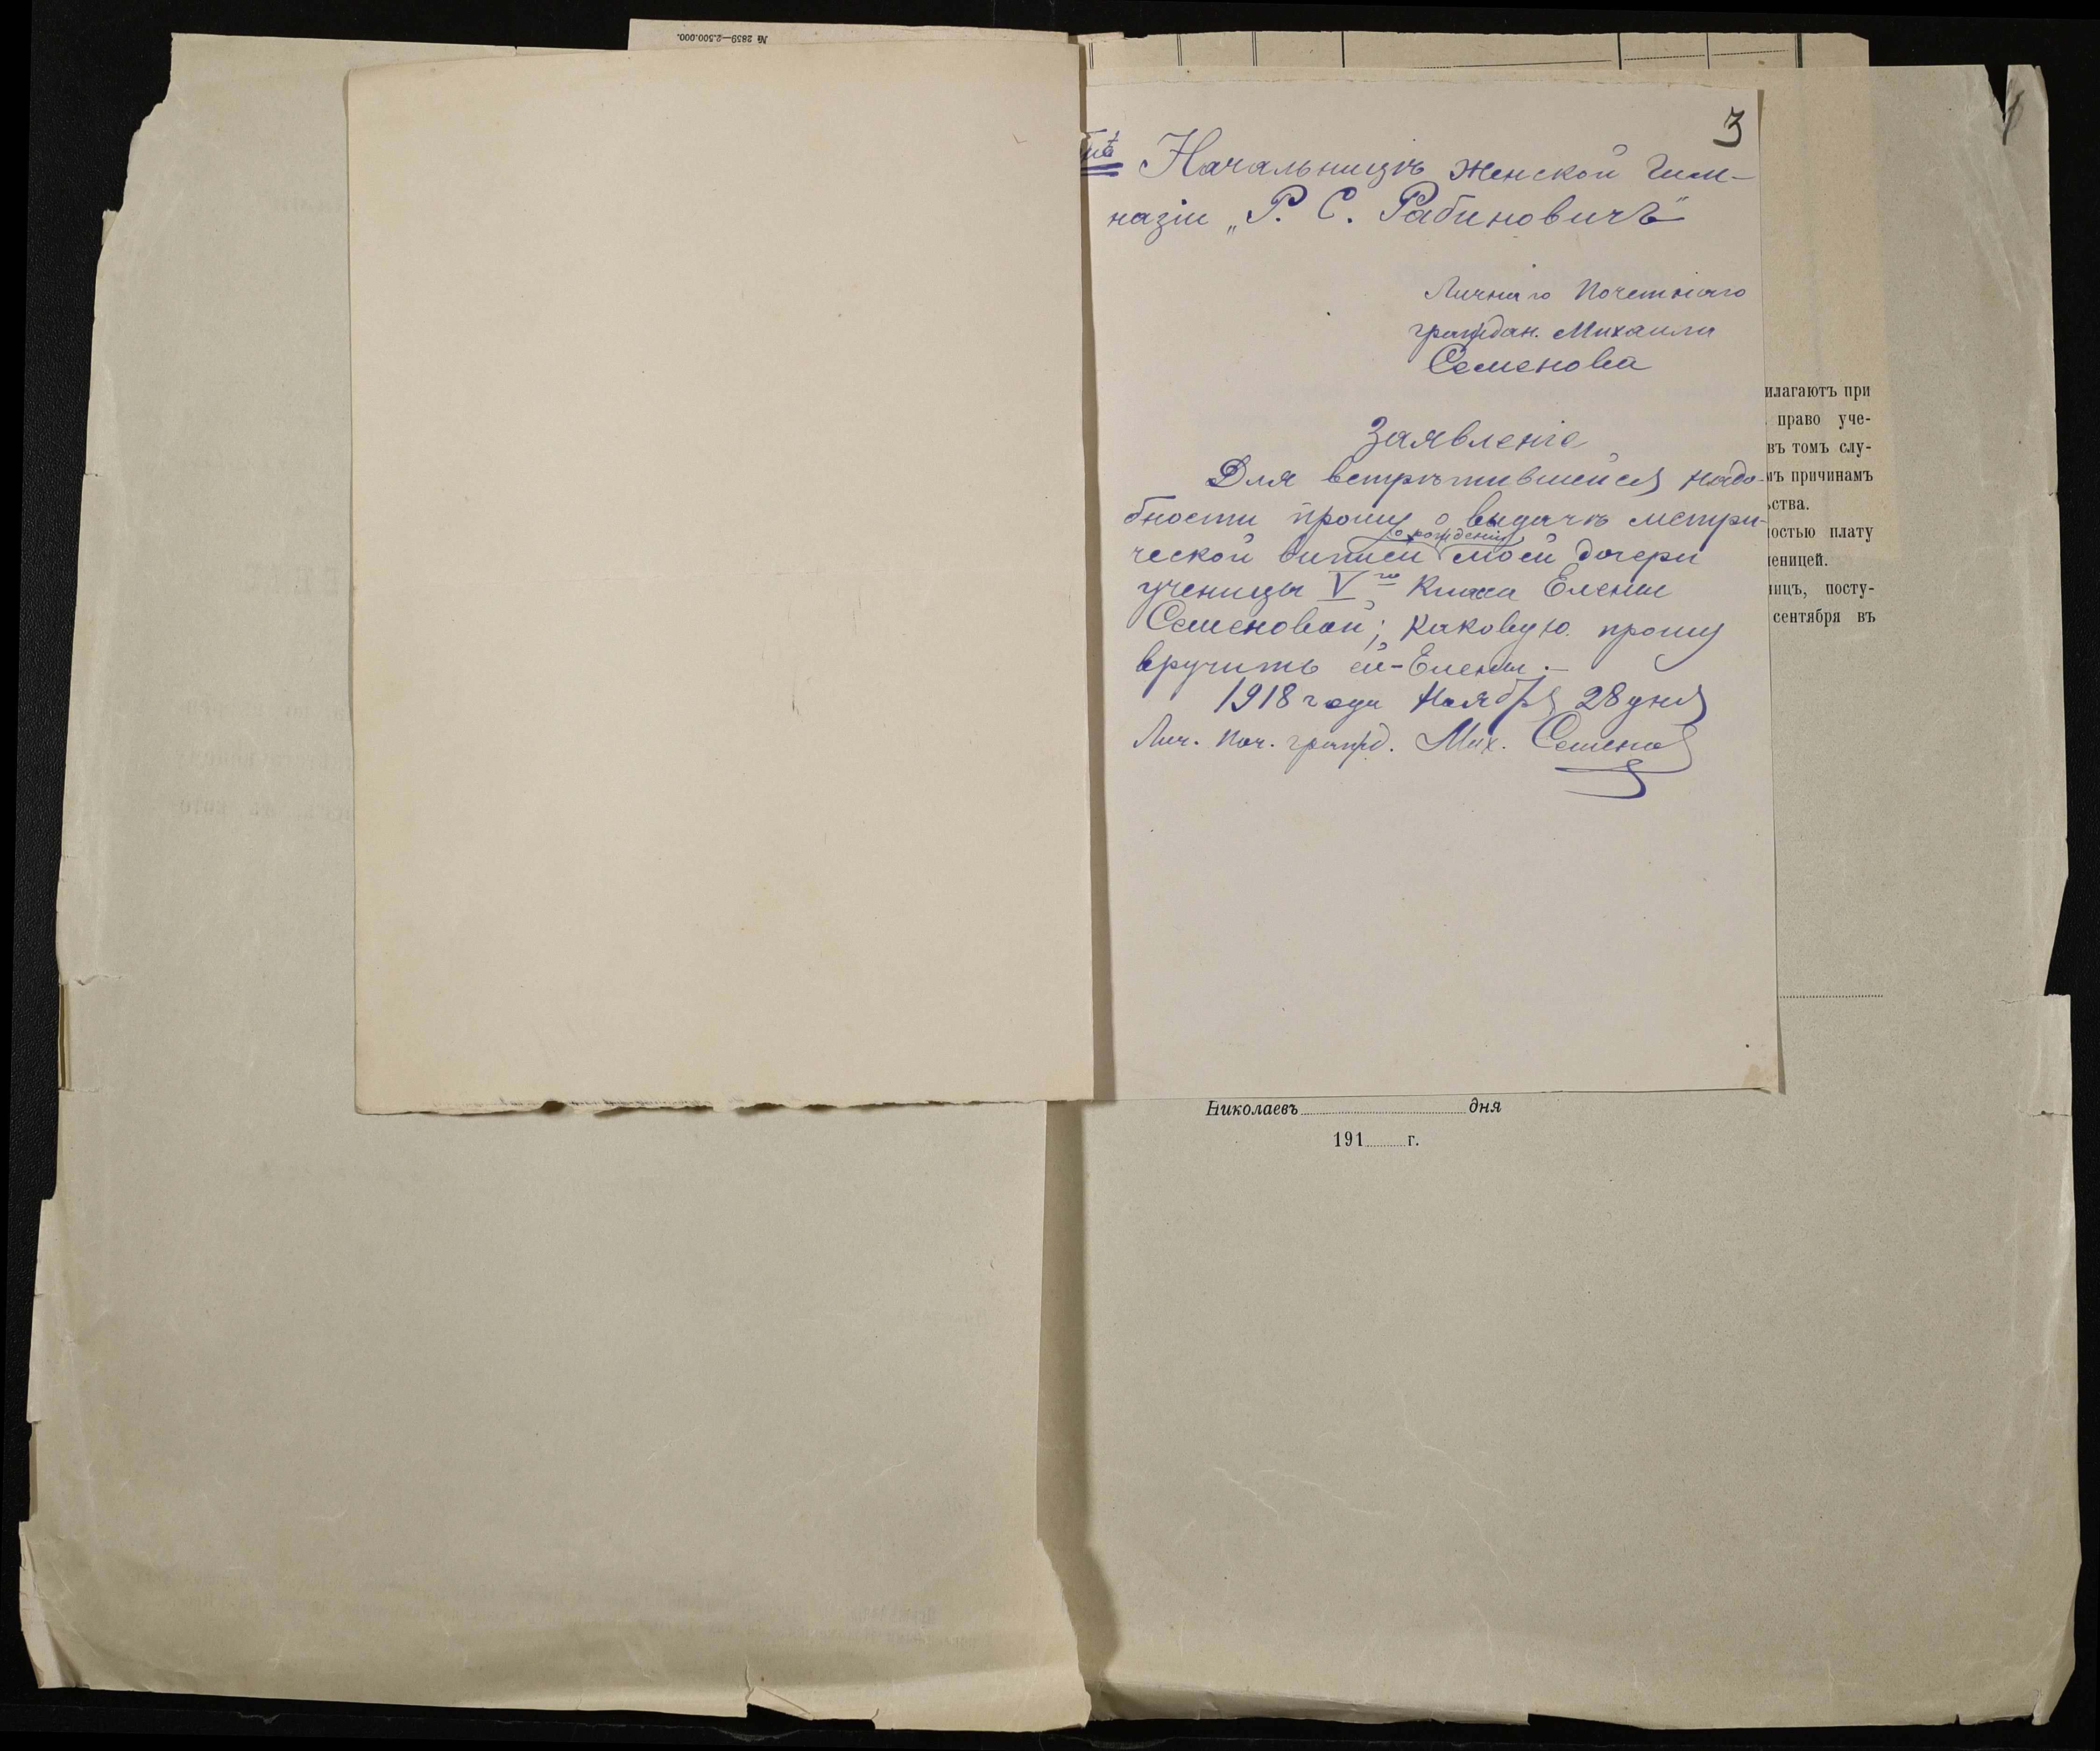 № 2859—2.500.000.
3
Начальницѣ Женской Гим-
назіи „Р. С. Рабиновичъ"
Личнаго Почетнаго
граждан. Михаила
Семенова
Заявленіе
Для встрѣтившейся надо-
бности прошу о выдачѣ метри-
о рожденіи
ческой выписи моей дочери
ученицы V го Класса Елены
Семеновой; каковую прошу
вручить ей-Елены.—
1918 года Ноября 28 дня
Лич. Поч. гражд. Мих. Семенов
илагаютъ при
право уче-
въ томъ слу-
мъ причинамъ
ства.
ностью плату
ченицей.
ницъ, посту-
сентября въ
Николаевъ дня
191 г.